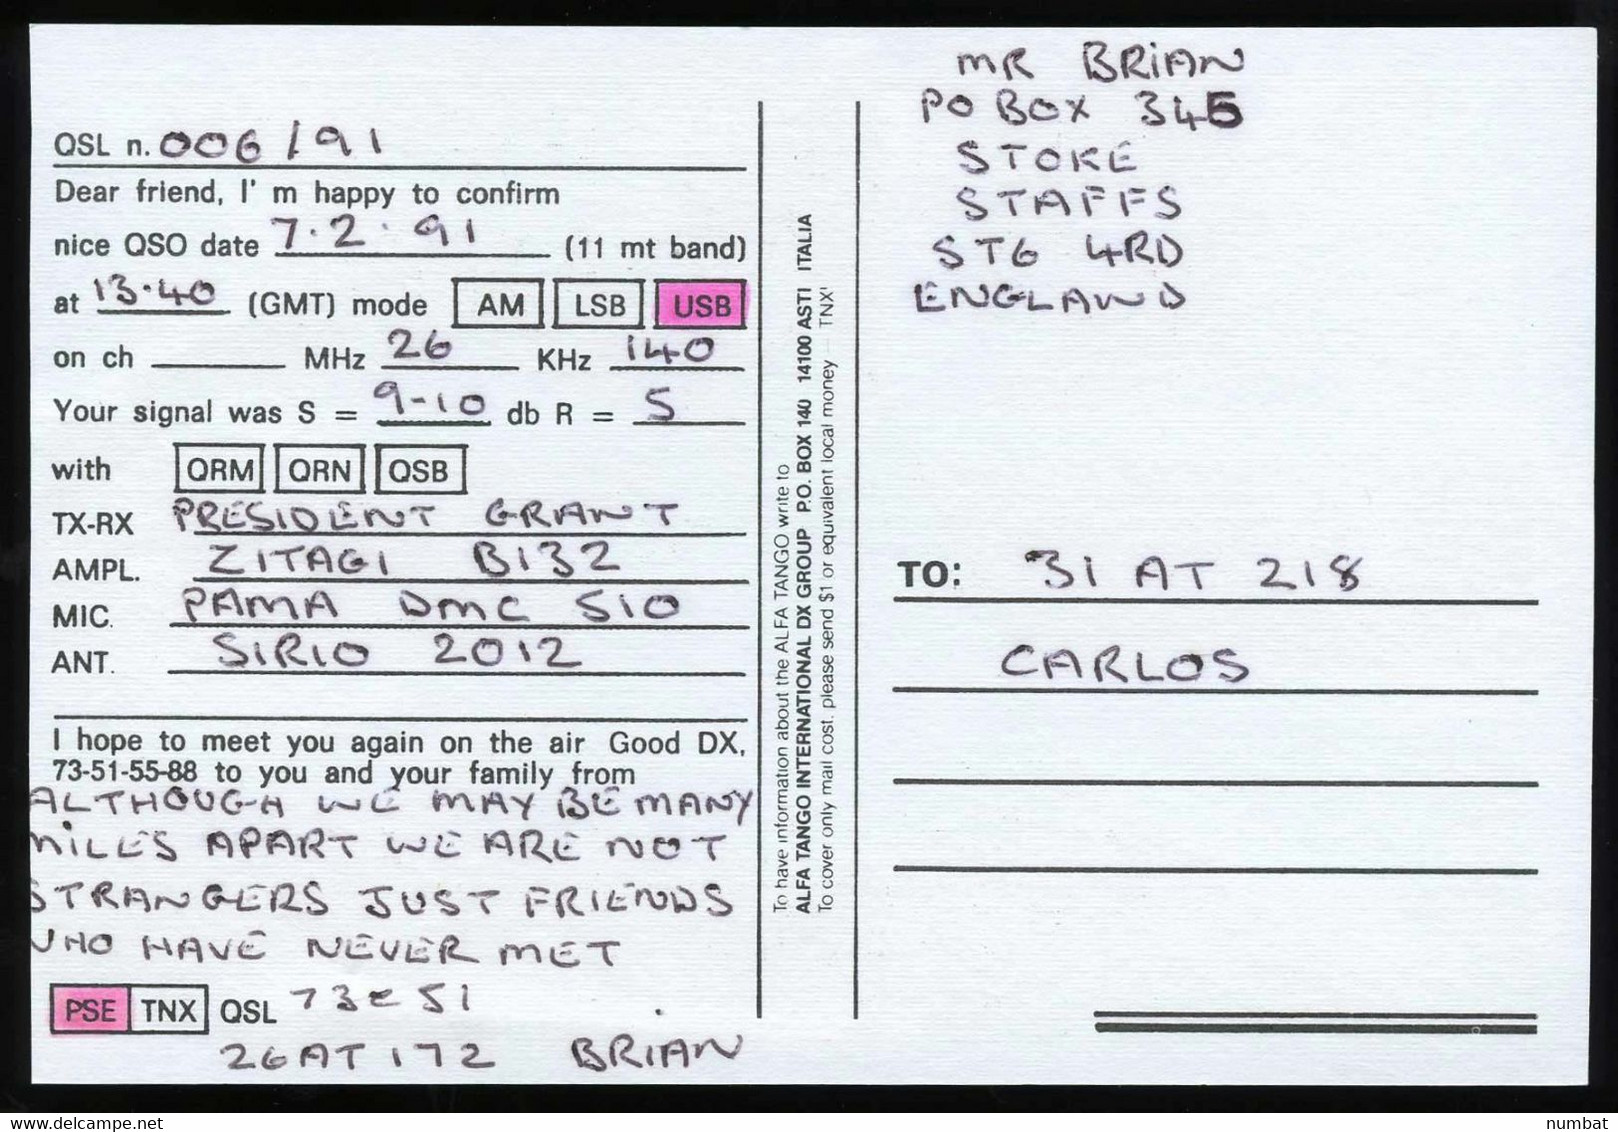 QSL n. 006/91
Dear friend, I' m happy to confirm
nice QSO date 7.2.91 (11 mt band)
at 13.40 (GMT) mode AM LSB USB
on ch MHz 26 KHz 140
Your signal was S = 9-10 db R = 5
with QRM QRN QSB
TX-RX PRESIDENT GRANT
AMPL. ZITAGI B132
MIC. PAMA DMC 510
ANT. SIRIO 2012
I hope to meet you again on the air Good DX,
73-51-55-88 to you and your family from
ALTHOUGH WE MAY BE MANY
MILES APART WE ARE NOT
STRANGERS JUST FRIENDS
WHO HAVE NEVER MET
PSE TNX QSL 73 e 51
26 AT 172 BRIAN
To have information about the ALFA TANGO write to
ALFA TANGO INTERNATIONAL DX GROUP P.O. BOX 140 14100 ASTI ITALIA
To cover only mail cost, please send $1 or equivalent local money — TNX!
MR BRIAN
PO BOX 345
STOKE
STAFFS
ST6 4RD
ENGLAND
TO: 31 AT 218
CARLOS
numbat